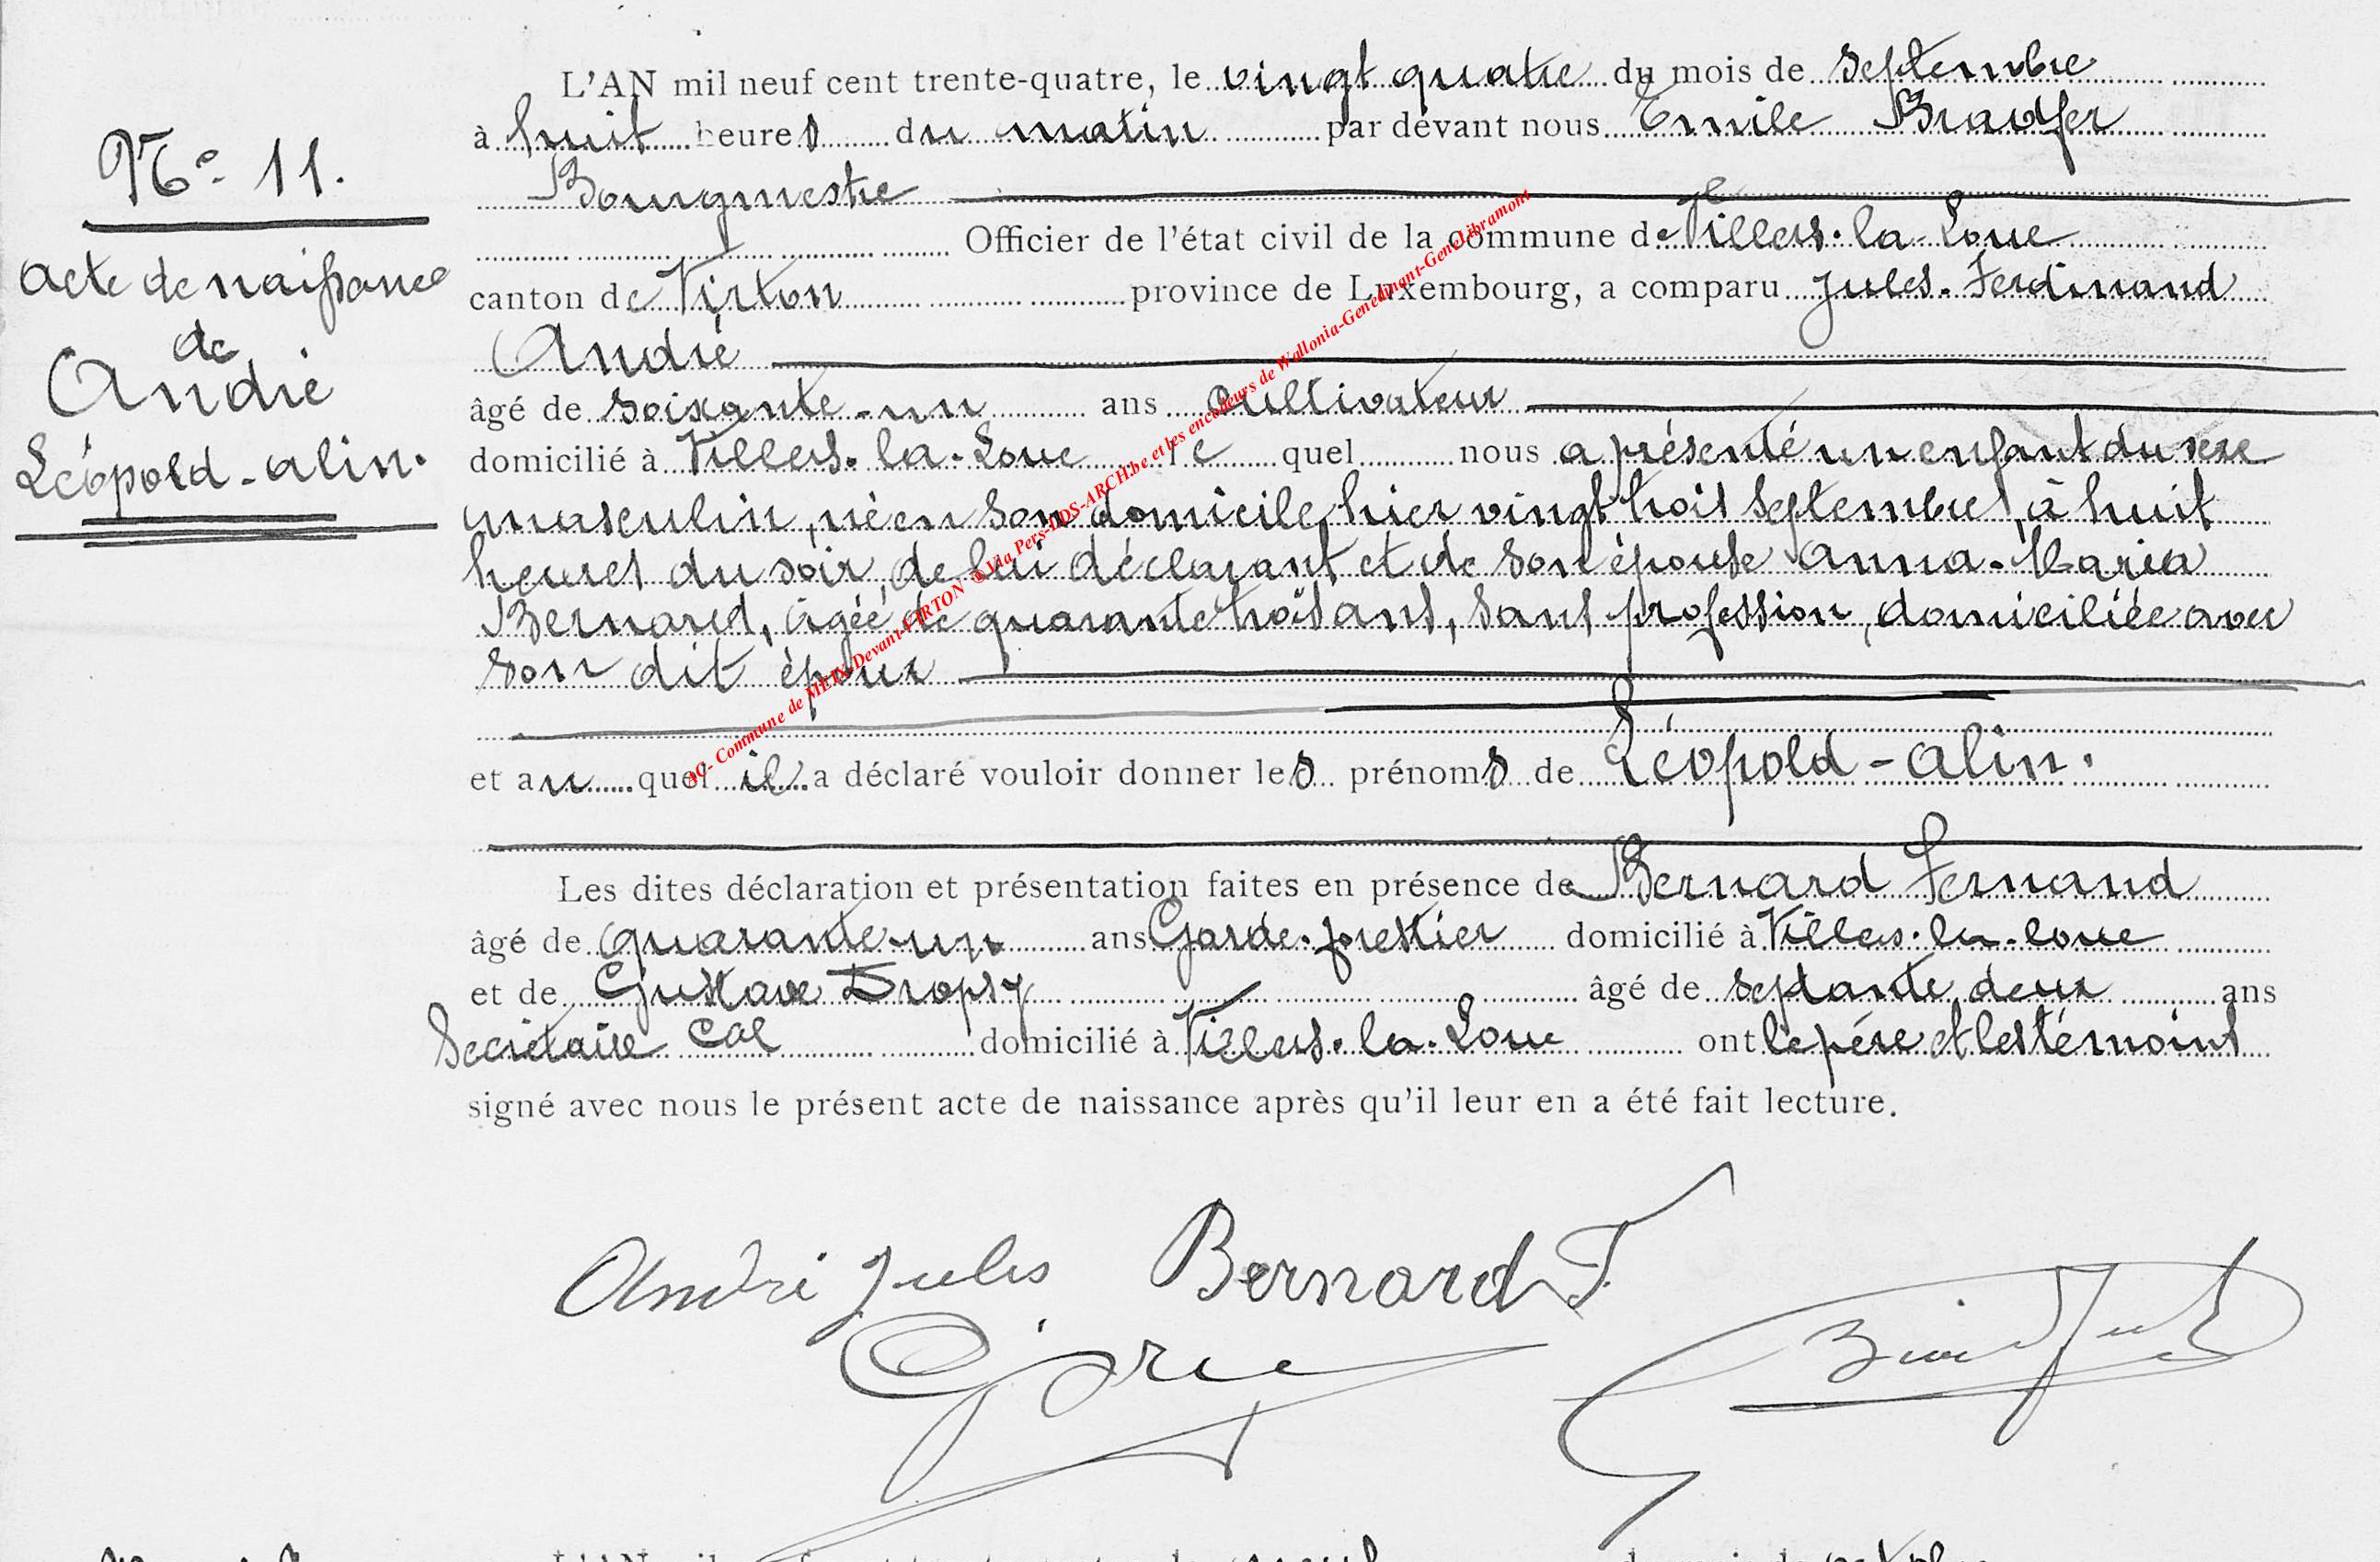 N° 11.
acte de naissance
de
André
Léopold-alin.
L'AN mil neuf cent trente-quatre, le vingt quatre du mois de Septembre
à huit heures du matin par devant nous Emile Bradfer
Bourgmestre
Officier de l'état civil de la commune de Villers-la-Loue
canton de Virton province de Luxembourg, a comparu Jules-Ferdinand
André
âgé de soixante-un ans cultivateur
domicilié à Villers-la-Loue le quel nous a présenté un enfant du sexe
masculin, né en son domicile, hier vingt trois Septembre, à huit
heures du soir, de lui déclarant et de son épouse Anna-Maria
Bernard, âgée de quarante trois ans, sans profession, domiciliée avec
son dit époux
et au quel il a déclaré vouloir donner les prénoms de Léopold-alin.
Les dites déclaration et présentation faites en présence de Bernard Fernand
âgé de quarante-un ans Garde-forestier domicilié à Villers-la-loue
et de Gustave Dropsy âgé de septante deux ans
Secrétaire cal domicilié à Villers-la-Loue ont le père et les témoins
signé avec nous le présent acte de naissance après qu'il leur en a été fait lecture.
André Jules Bernard F
AC- Commune de MEIX-Devant-VIRTON @ Via Pers-DDS-ARCH.be et les encodeurs de Wallonia-Genedinant-Genelibramont